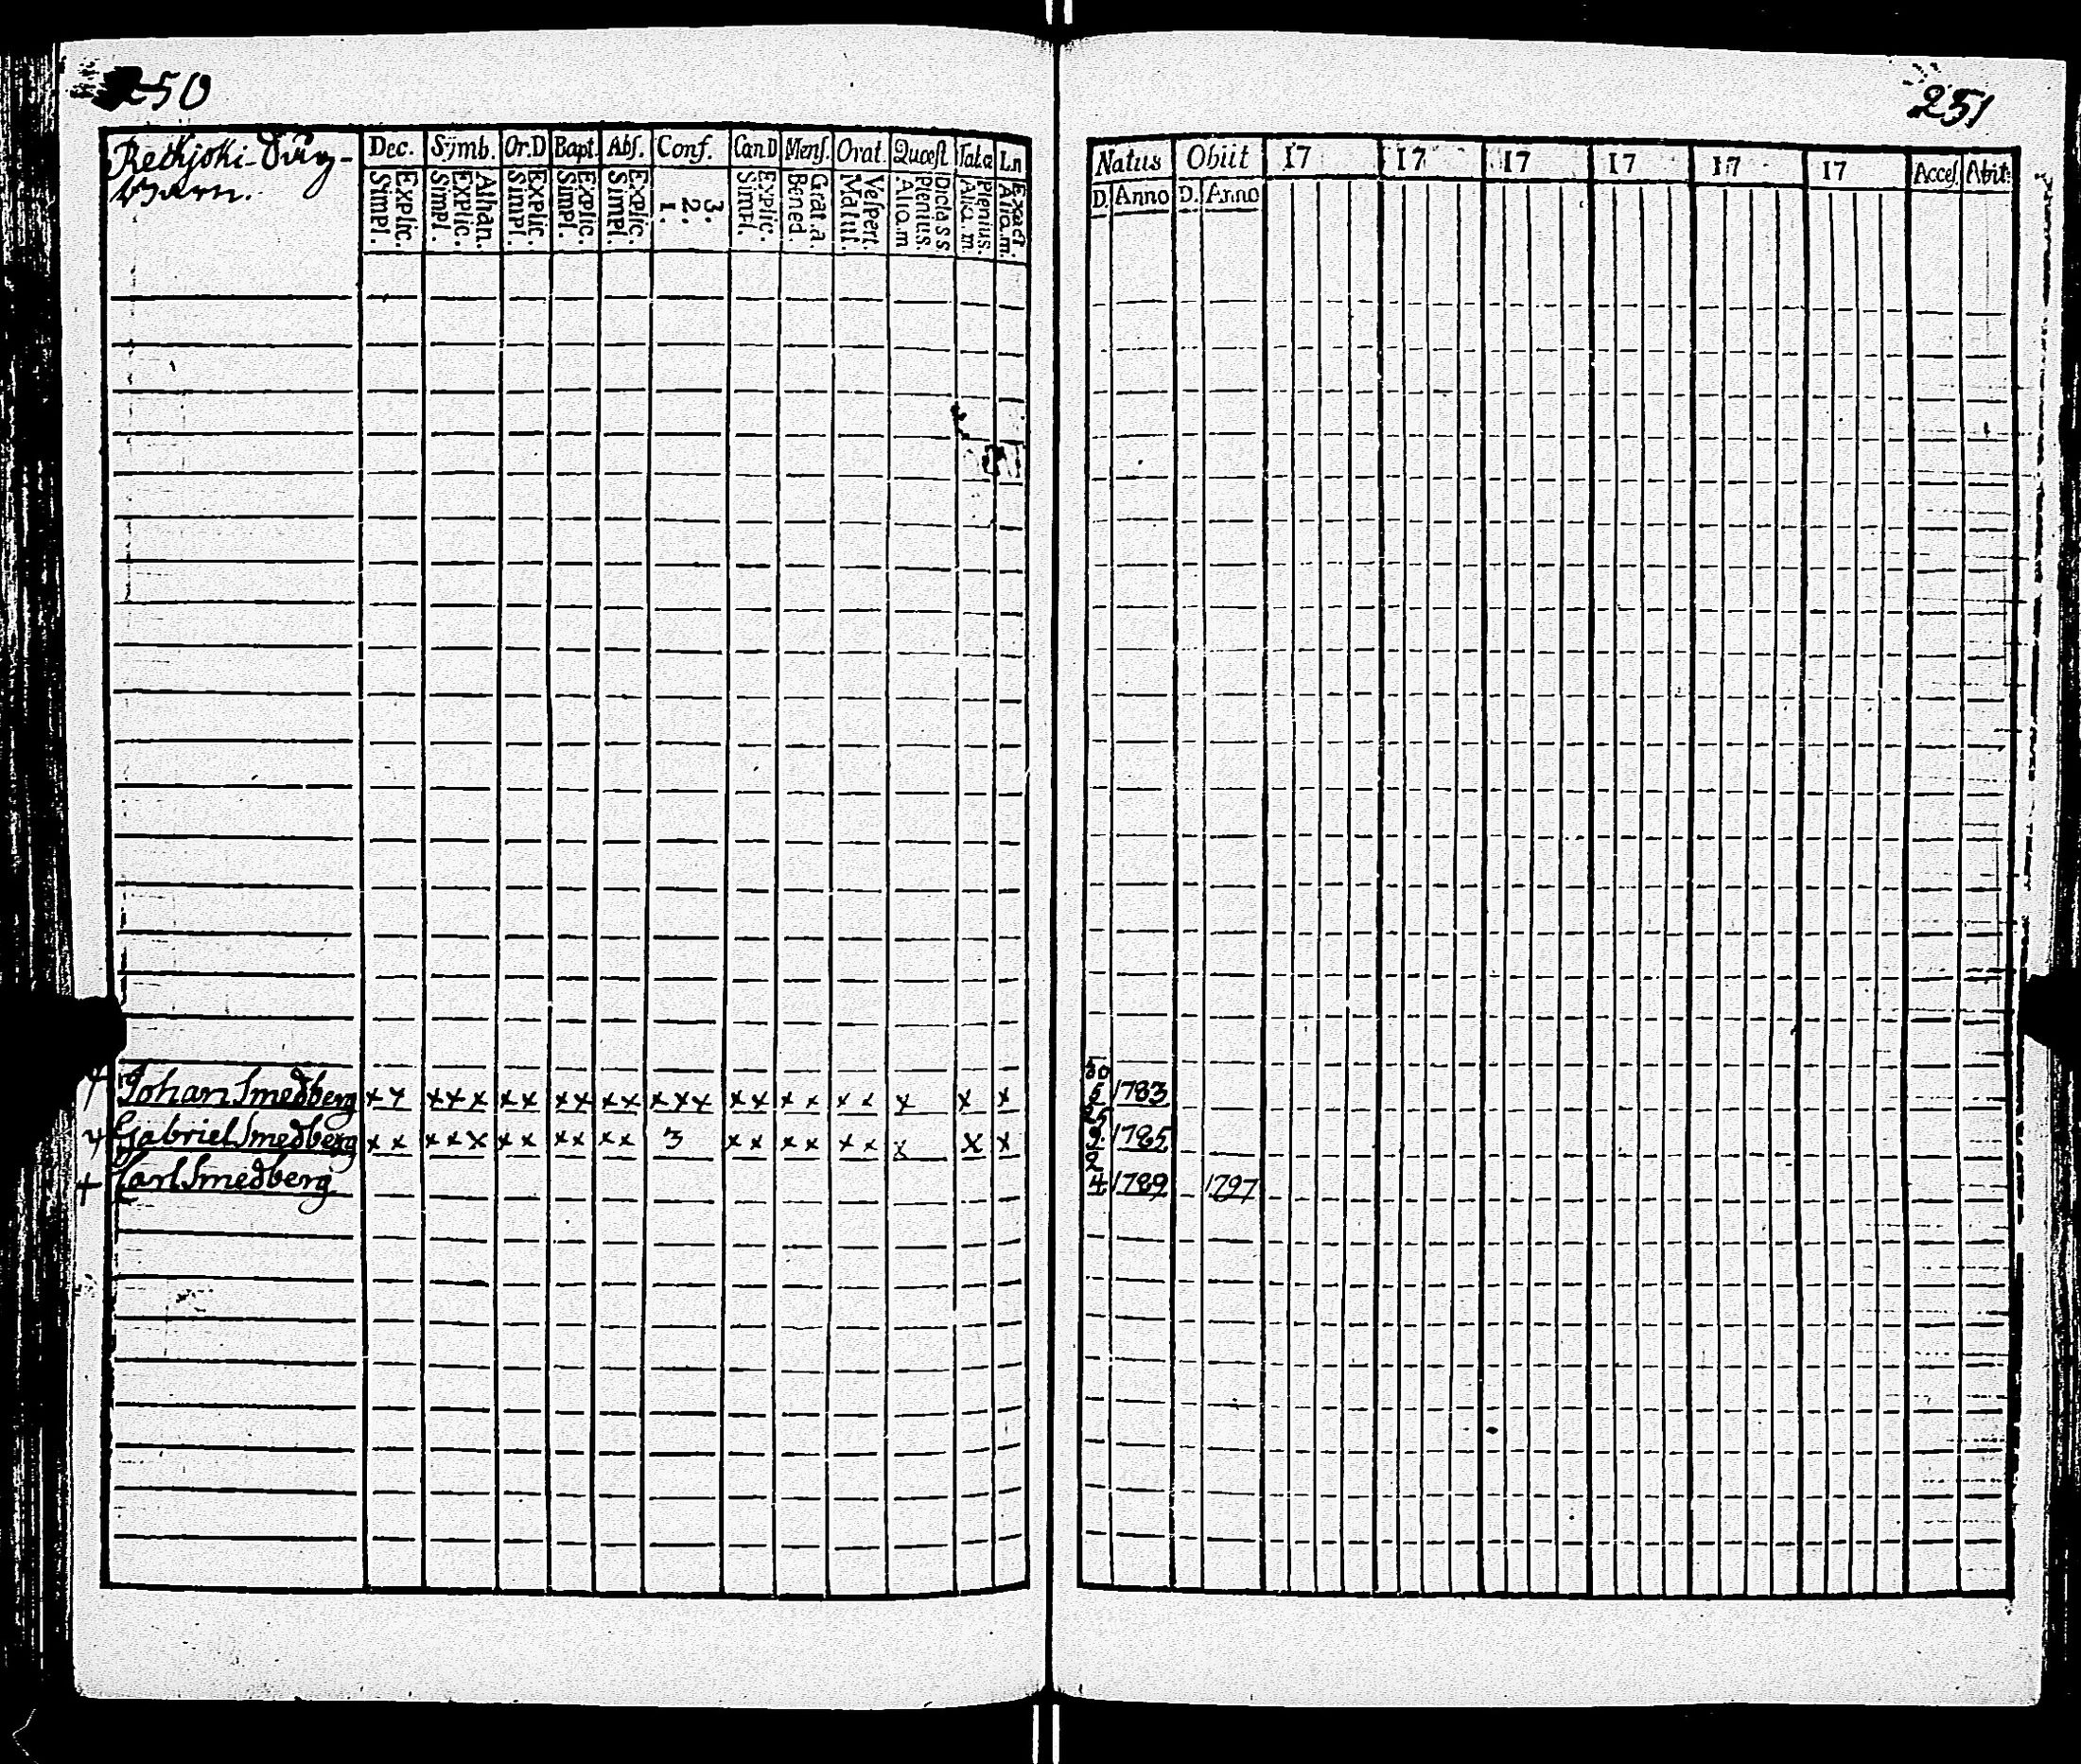 250
Dec. Sijmb. Or.D Bapt. Abs. Conf. Can D Mens. Orat. Quæst Tab.æ Ln
Barn.
Explic. Simpl. Athan. Explic. Simpl. Explic. Simpl. Explic. Simpl. Explic. Simpl. 3. 2. 1. Explic. Simpl. Grat.a. Bened. Vespert. Matut. Dicta ss Plenius. Alio.m Plenius. Alia.m. Exact Alia.m.
Johan Smedberg x x x x x x x x x x x x x x x x x x x x x x x
Gabriel Smedberg x x x x x x x x x x x 3 x x x x x x x x x
Carl Smedberg
251
Natus Obiit 17 17 17 17 17 17 Acces. Abit:
D. Anno D. Anno
30
5 1783
25
9. 1785
2
4 1789 1797